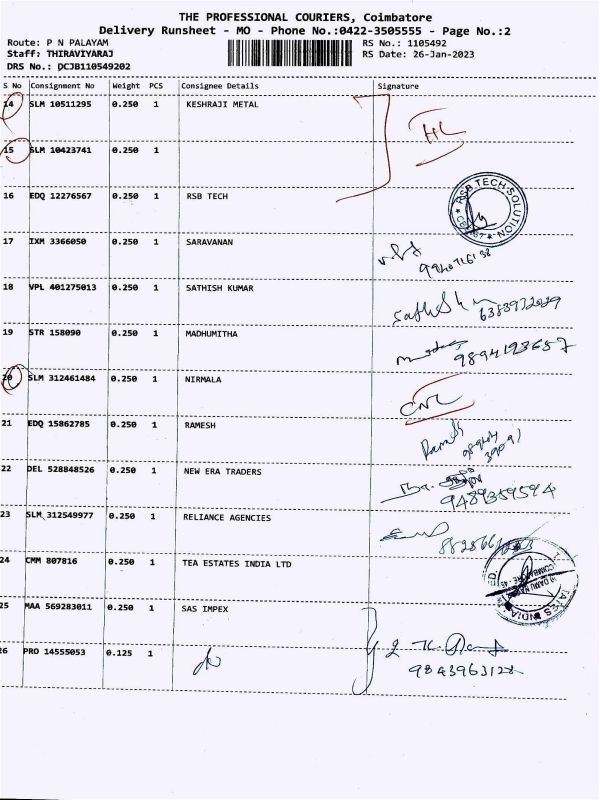 THE PROFESSIONAL COURIERS, Coimbatore
Delivery Runsheet - MO - Phone No.:0422-3505555 - Page No.:2
Route: P N PALAYAM RS No.: 1105492
Staff: THIRAVIYARAJ RS Date: 26-Jan-2023
DRS No.: DCJB110549202
S No Consignment No Weight PCS Consignee Details Signature
14 SLM 10511295 0.250 1 KESHRAJI METAL
15 SLM 10423741 0.250 1
16 EDQ 12276567 0.250 1 RSB TECH
RSB TECH SOLUTION
17 IXM 3366050 0.250 1 SARAVANAN
18 VPL 401275013 0.250 1 SATHISH KUMAR
19 STR 158090 0.250 1 MADHUMITHA
9894193657
20 SLM 312461484 0.250 1 NIRMALA
21 EDQ 15862785 0.250 1 RAMESH
22 DEL 528848526 0.250 1 NEW ERA TRADERS
9489359594
23 SLM 312549977 0.250 1 RELIANCE AGENCIES
24 CMM 807816 0.250 1 TEA ESTATES INDIA LTD
25 MAA 569283011 0.250 1 SAS IMPEX
26 PRO 14555053 0.125 1
9843963128